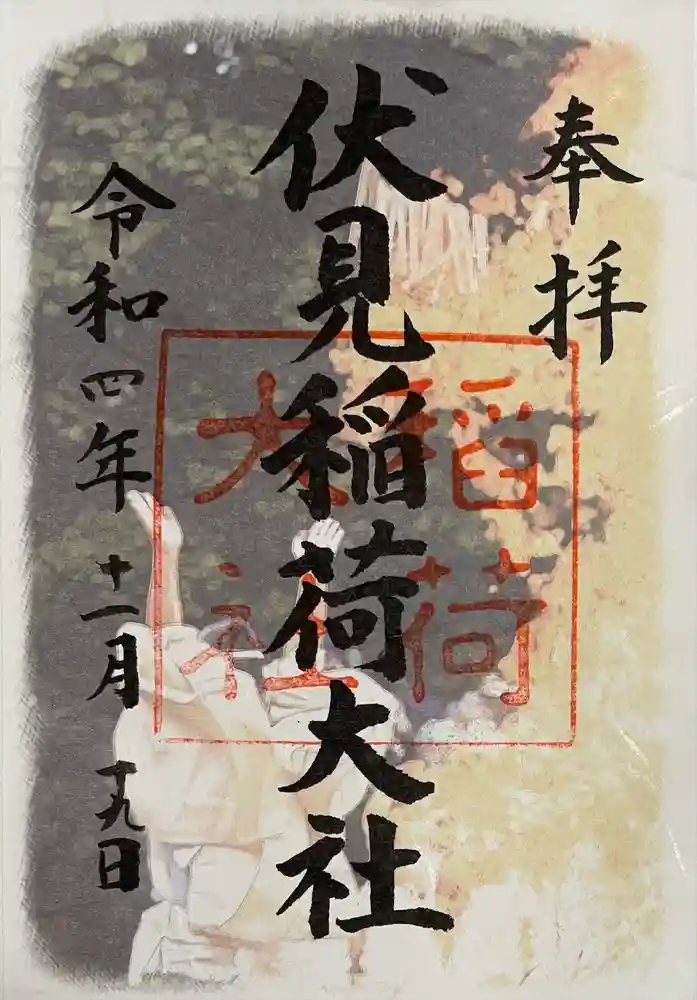 奉拝
伏見稲荷大社
稲荷
大社
令和四年十一月十九日